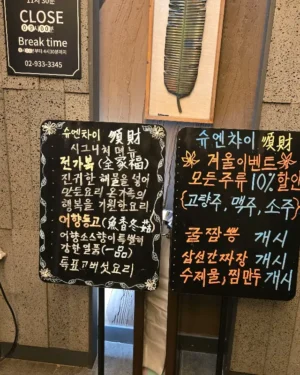 11시 30분
CLOSE
Break time
02-933-3345
슈엔챠이 順財
시그니쳐 메뉴
전가복 (全家福)
진귀한 해물을 넣어
만든요리 온가족의
행복을 기원한요리
어향동고 (魚香冬菇)
어향소스향이 특별히
강한 일품(一品)
특표고버섯요리
슈엔챠이 順財
겨울이벤트
모든주류 10% 할인
(고량주, 맥주, 소주)
굴짬뽕 개시
삼선간짜장 개시
수제물,찜만두 개시